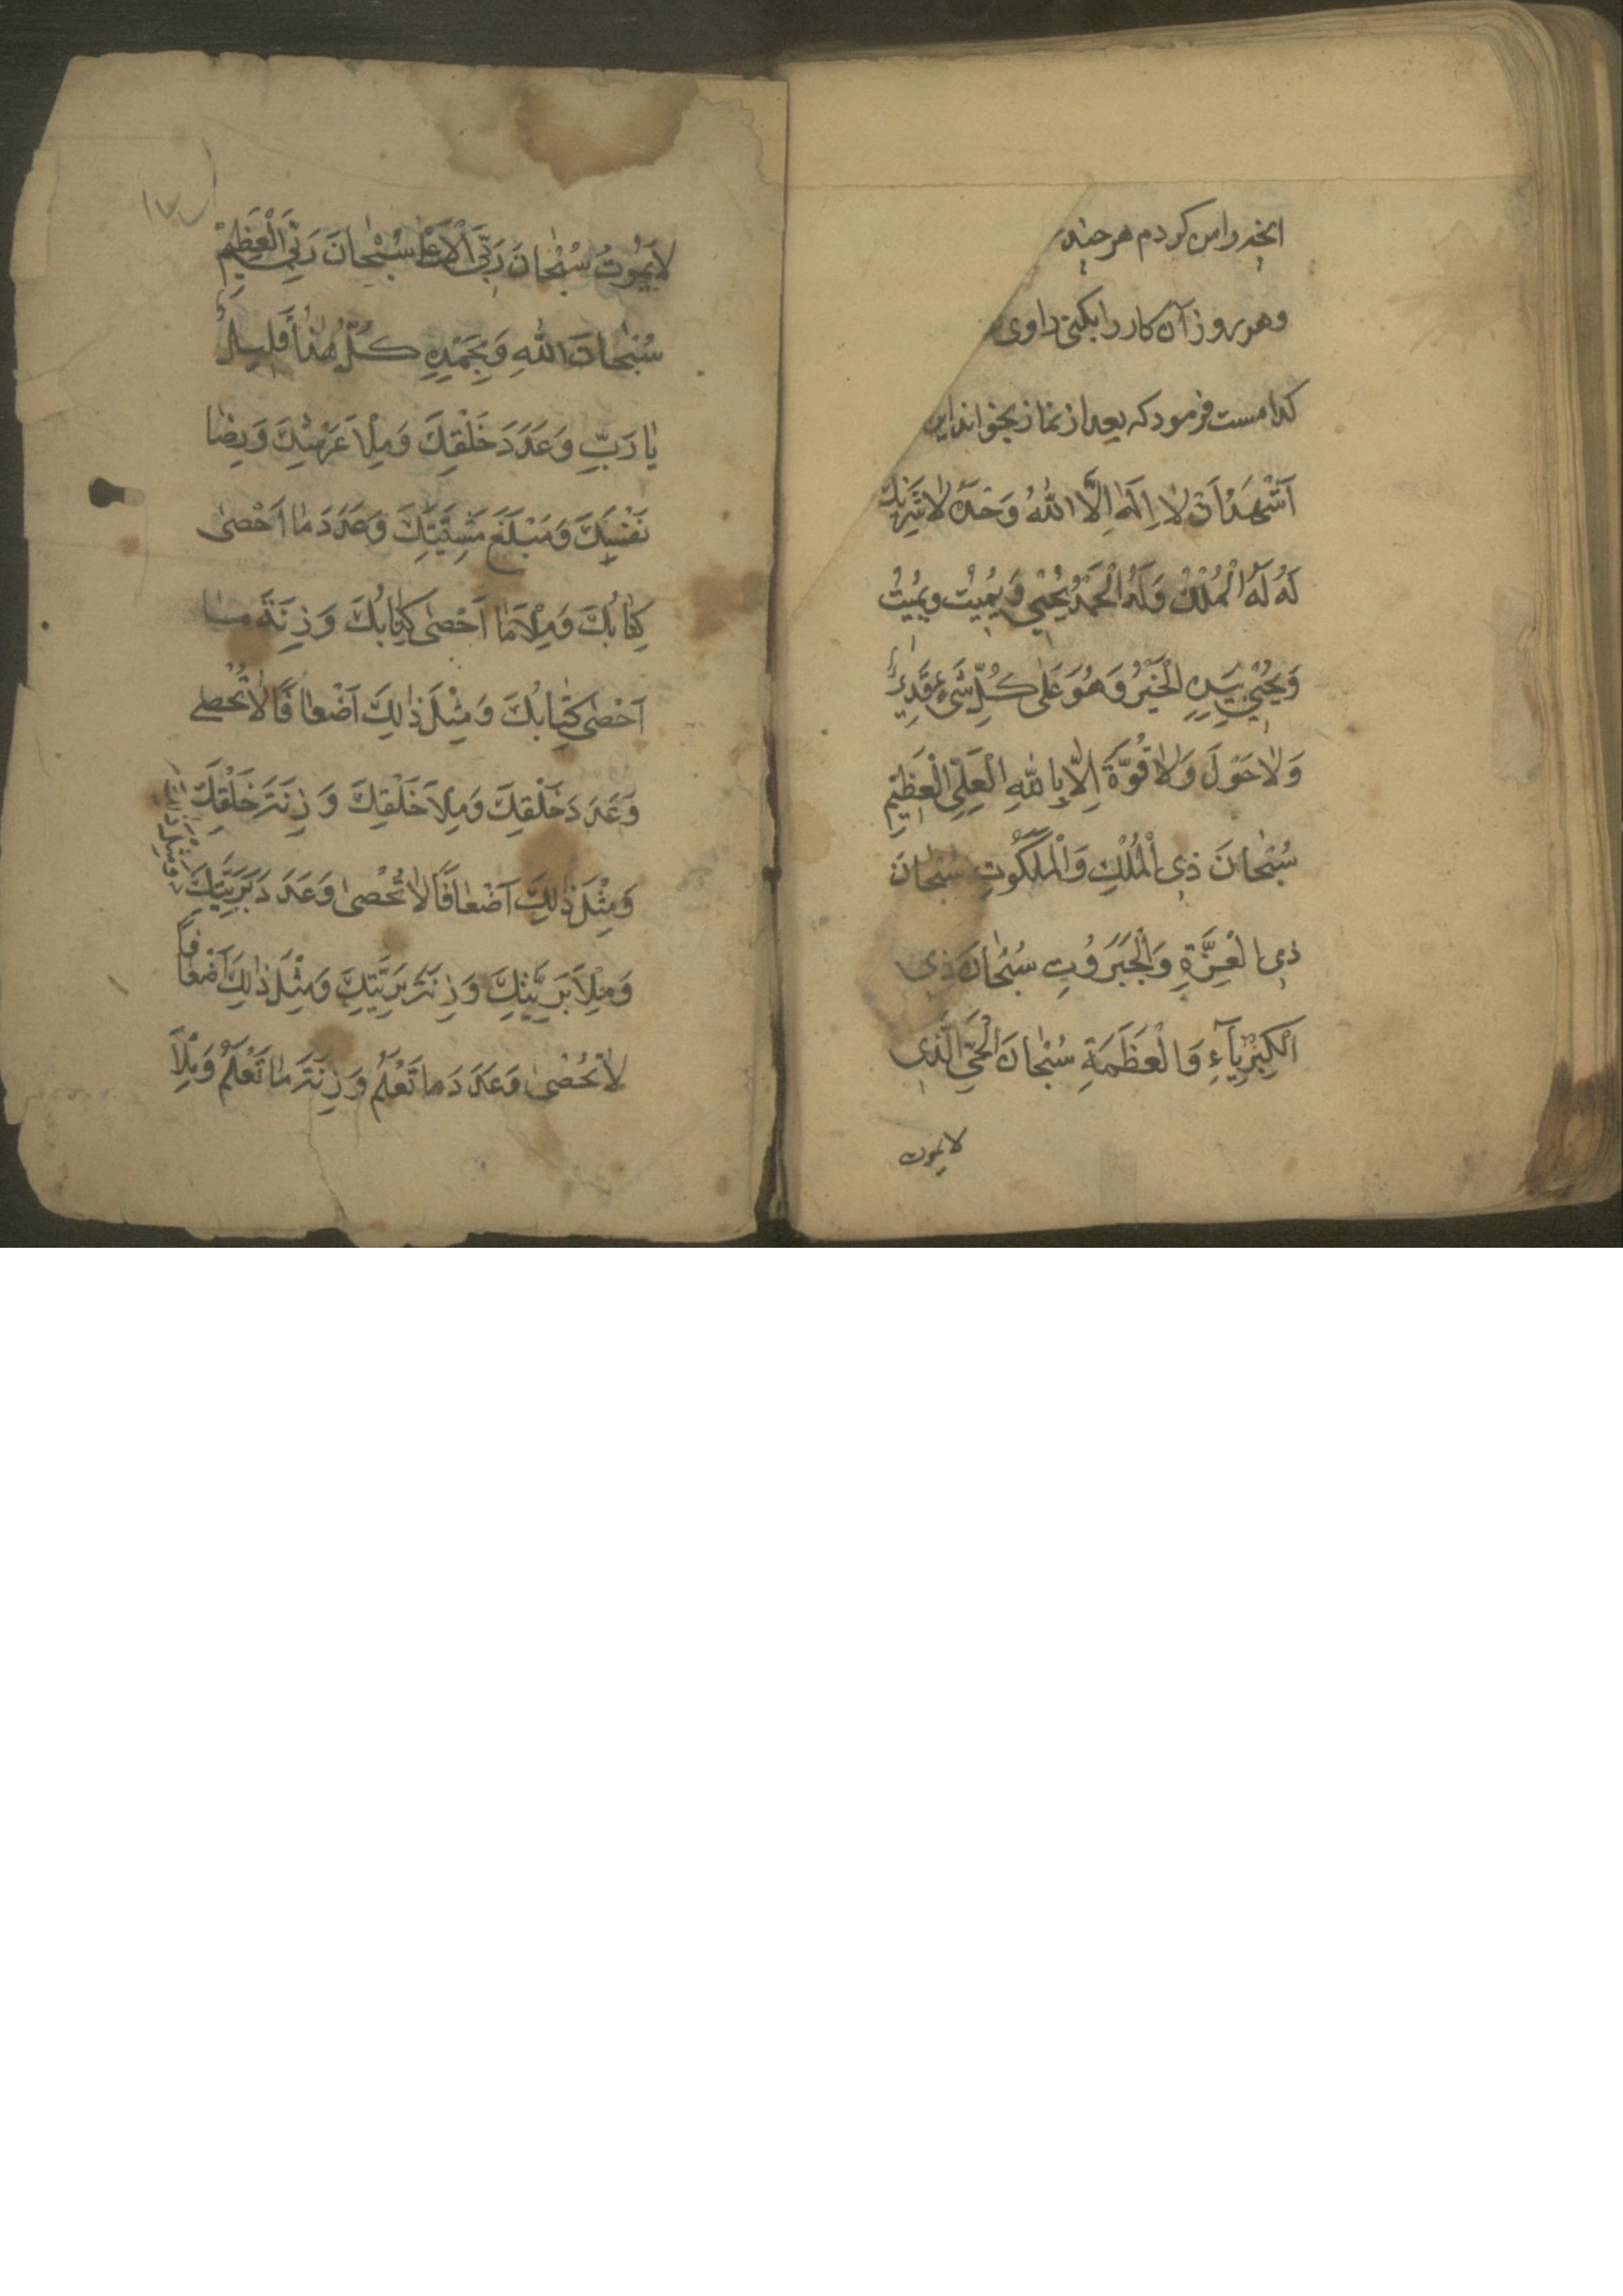 انچه را من کردم هر چند
و هر روز آن کار را بکنی راوی
کدامست فرمود که بعد از نماز بخواند این
اَشْهَدُ اَنْ لا اِلٰهَ اِلَّا اللّٰهُ وَحْدَهُ لا شَرِیكَ
لَهُ لَهُ الْمُلْكُ وَلَهُ الْحَمْدُ یُحْیی وَ یُمیتُ و یمُیتُ
وَ یُحْیی بِیَدِهِ الْخَیْرُ وَ هُوَ عَلی كُلِّ شَیْءٍ قَدیرٌ
وَ لا حَوْلَ وَ لا قُوَّةَ اِلّا بِاللّٰهِ الْعَلِیِّ الْعَظیمِ
سُبْحانَ ذِی الْمُلْكِ وَ الْمَلَكُوتِ سُبْحانَ
ذِی الْعِزَّةِ وَ الْجَبَرُوتِ سُبْحانَ ذِی
الْكِبْرِیآءِ وَ الْعَظَمَةِ سُبْحانَ الْحَیِّ الَّذی
لا یموت
لا یَمُوتُ سُبْحانَ رَبِّیَ الْاَعْلیٰ سُبْحانَ رَبِّیَ الْعَظیمِ
سُبْحانَ اللّٰهِ وَ بِحَمْدِهِ كُلُّ هٰذا قَلیلٌ
یا رَبِّ وَ عَدَدَ خَلْقِكَ وَ مِلْاَ عَرْشِكَ وَ رِضا
نَفْسِكَ وَ مَبْلَغَ مَشِیَّتِكَ وَ عَدَدَ ما اَحْصیٰ
كِتابُكَ وَ مِلْاَ ما اَحْصیٰ كِتابُكَ وَ زِنَةَ مـا
اَحْصیٰ كِتابُكَ وَ مِثْلَ ذٰلِكَ اَضْعافًا لا تُحْصیٰ
وَ عَدَدَ خَلْقِكَ وَ مِلْاَ خَلْقِكَ وَ زِنَةَ خَلْقِكَ
وَ مِثْلَ ذٰلِكَ اَضْعافًا لا تُحْصیٰ وَ عَدَدَ بَرِیَّتِكَ
وَ مِلْاَ بَرِیَّتِكَ وَ زِنَةَ بَرِیَّتِكَ وَ مِثْلَ ذٰلِكَ اَضْعافاً
لا تُحْصیٰ وَ عَدَدَ ما تَعْلَمُ وَ زِنَةَ ما تَعْلَمُ وَ مِلْاَ